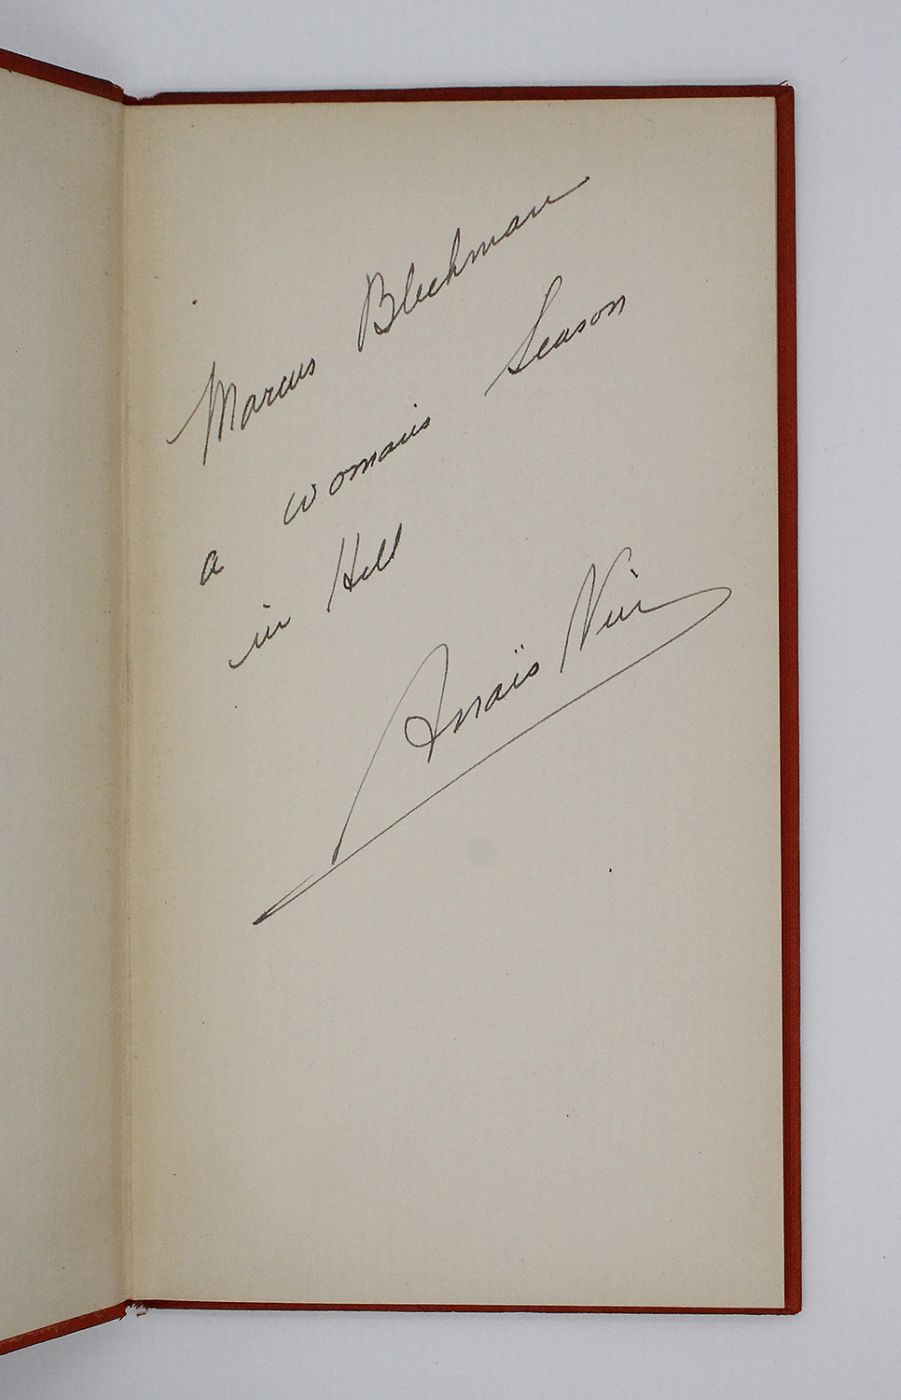 Marcus Blechman
a woman's Season
in Hell
Anaïs Nin